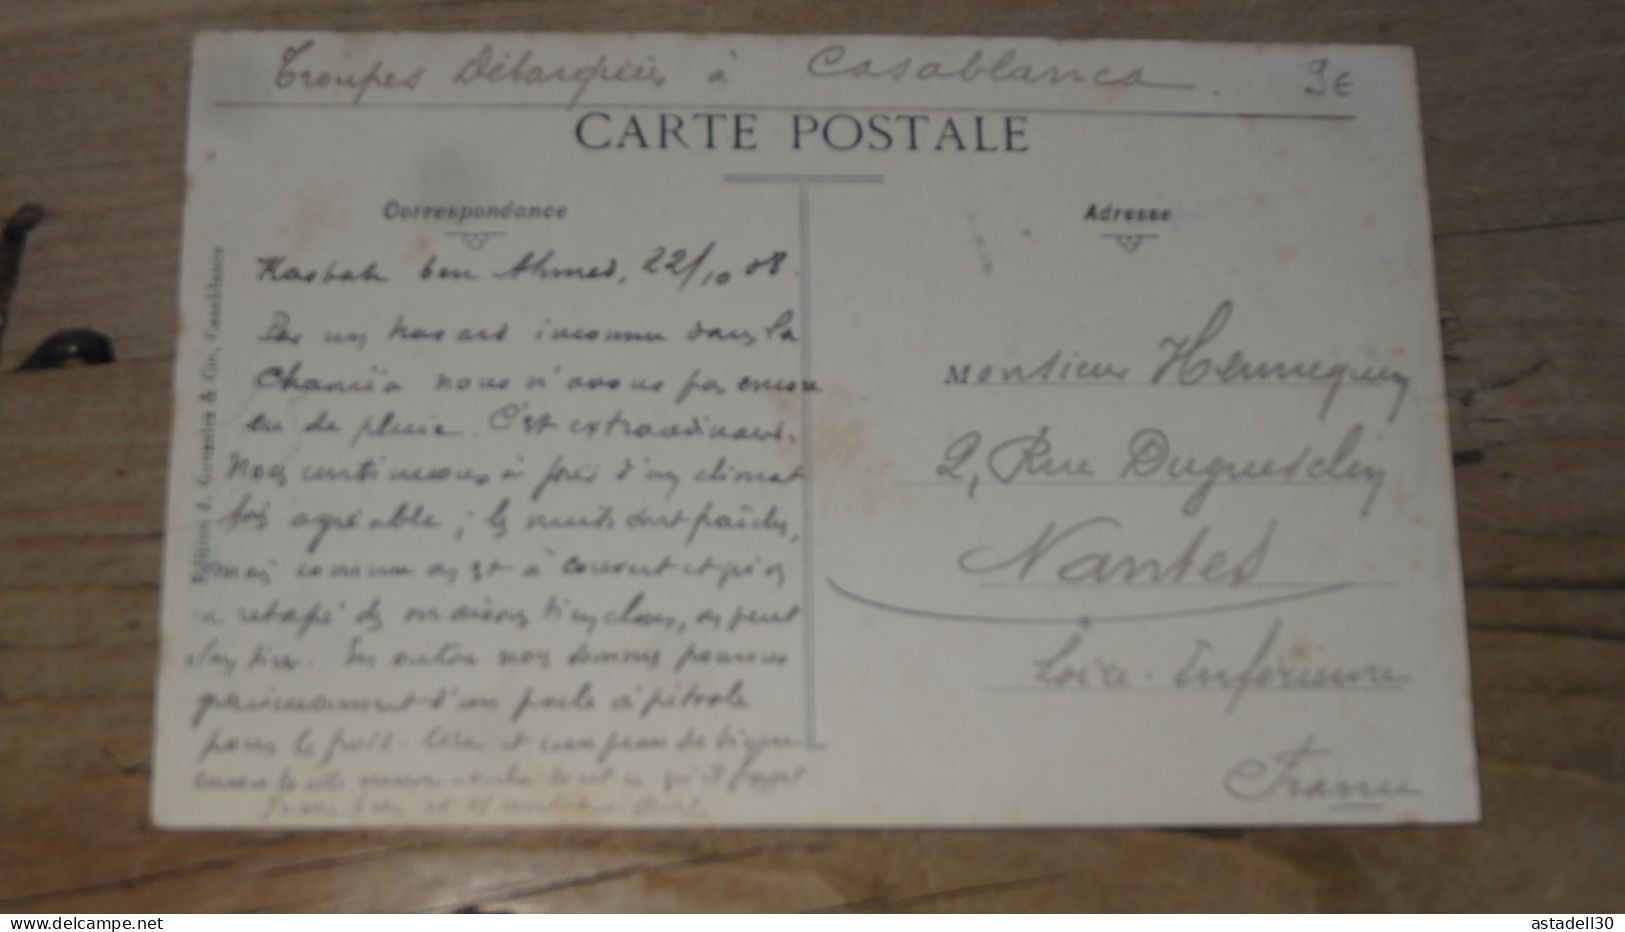 Troupes Débarquées à Casablanca.
9€
CARTE POSTALE
Correspondance
Adresse
Edition J. Gonnier & Cie, Casablanca
Kasbah ben Ahmed, 22/10 08.
Par un hasard inconnu dans la
Chaouïa nous n'avons pas encore
eu de pluie. C'est extraordinaire.
Nous continuons à jouir d'un climat
très agréable; les nuits sont fraîches,
mais comme on est à couvert et qu'on
a retapé des maisons bien closes, on peut
s'en tirer. En outre nous sommes pourvus
d'un poele à pétrole
pour le froid. et un peu de
tout ce qu'il faut
Monsieur Hennequin
2, Rue Duguesclin
Nantes
Loire-Inférieure
France
astadell30